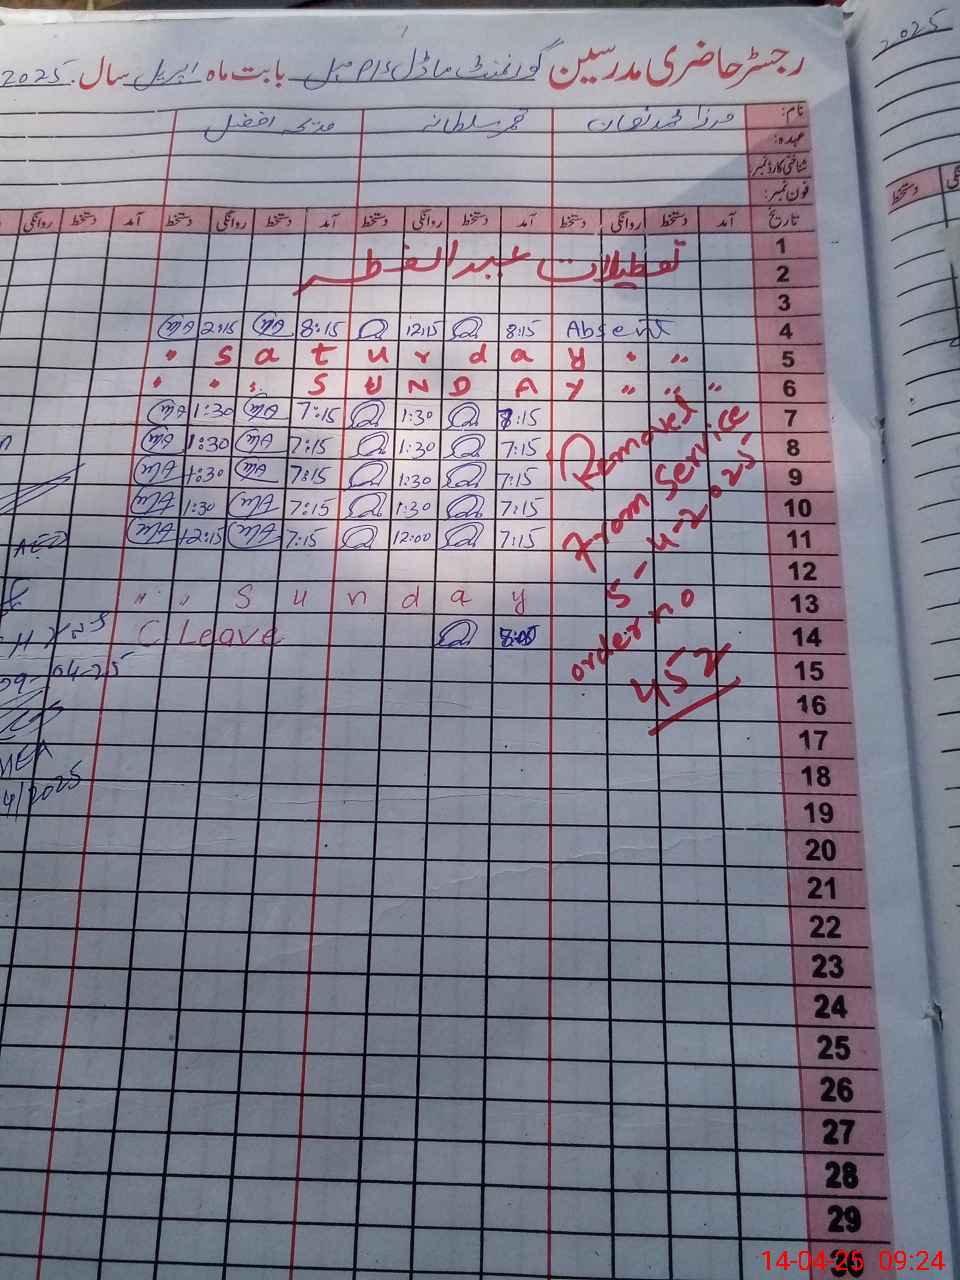 رجسٹر حاضری مدرسین گورنمنٹ ماڈل بابت ماہ اپریل سال 2025
2025
نام: مرزا محمد نعمان قمر سلطانہ مدیحہ افضل
عہدہ:
شناختی کارڈ نمبر:
فون نمبر:
تاریخ آمد دستخط روانگی دستخط آمد دستخط روانگی دستخط آمد دستخط روانگی دستخط آمد دستخط روانگی
دستخط
1
2 تعطیلات عید الفطر
3
4 Absent 8:15 12:15 8:15 2:15
5 " Saturday " "
6 " " : SUNDAY " " "
7 8:15 1:30 7:15 1:30
8 7:15 1:30 7:15 1:30
9 7:15 1:30 7:15 1:30
10 7:15 1:30 7:15 1:30
11 7:15 12:00 7:15 12:15
Removed
From Service
5-4-2025
order no
452
12
13 " " Sunday
14 C Leave
15
16
17
18
19
20
21
22
23
24
25
26
27
28
29
AEO
09-04-25
4/2025
14-04-25 09:24